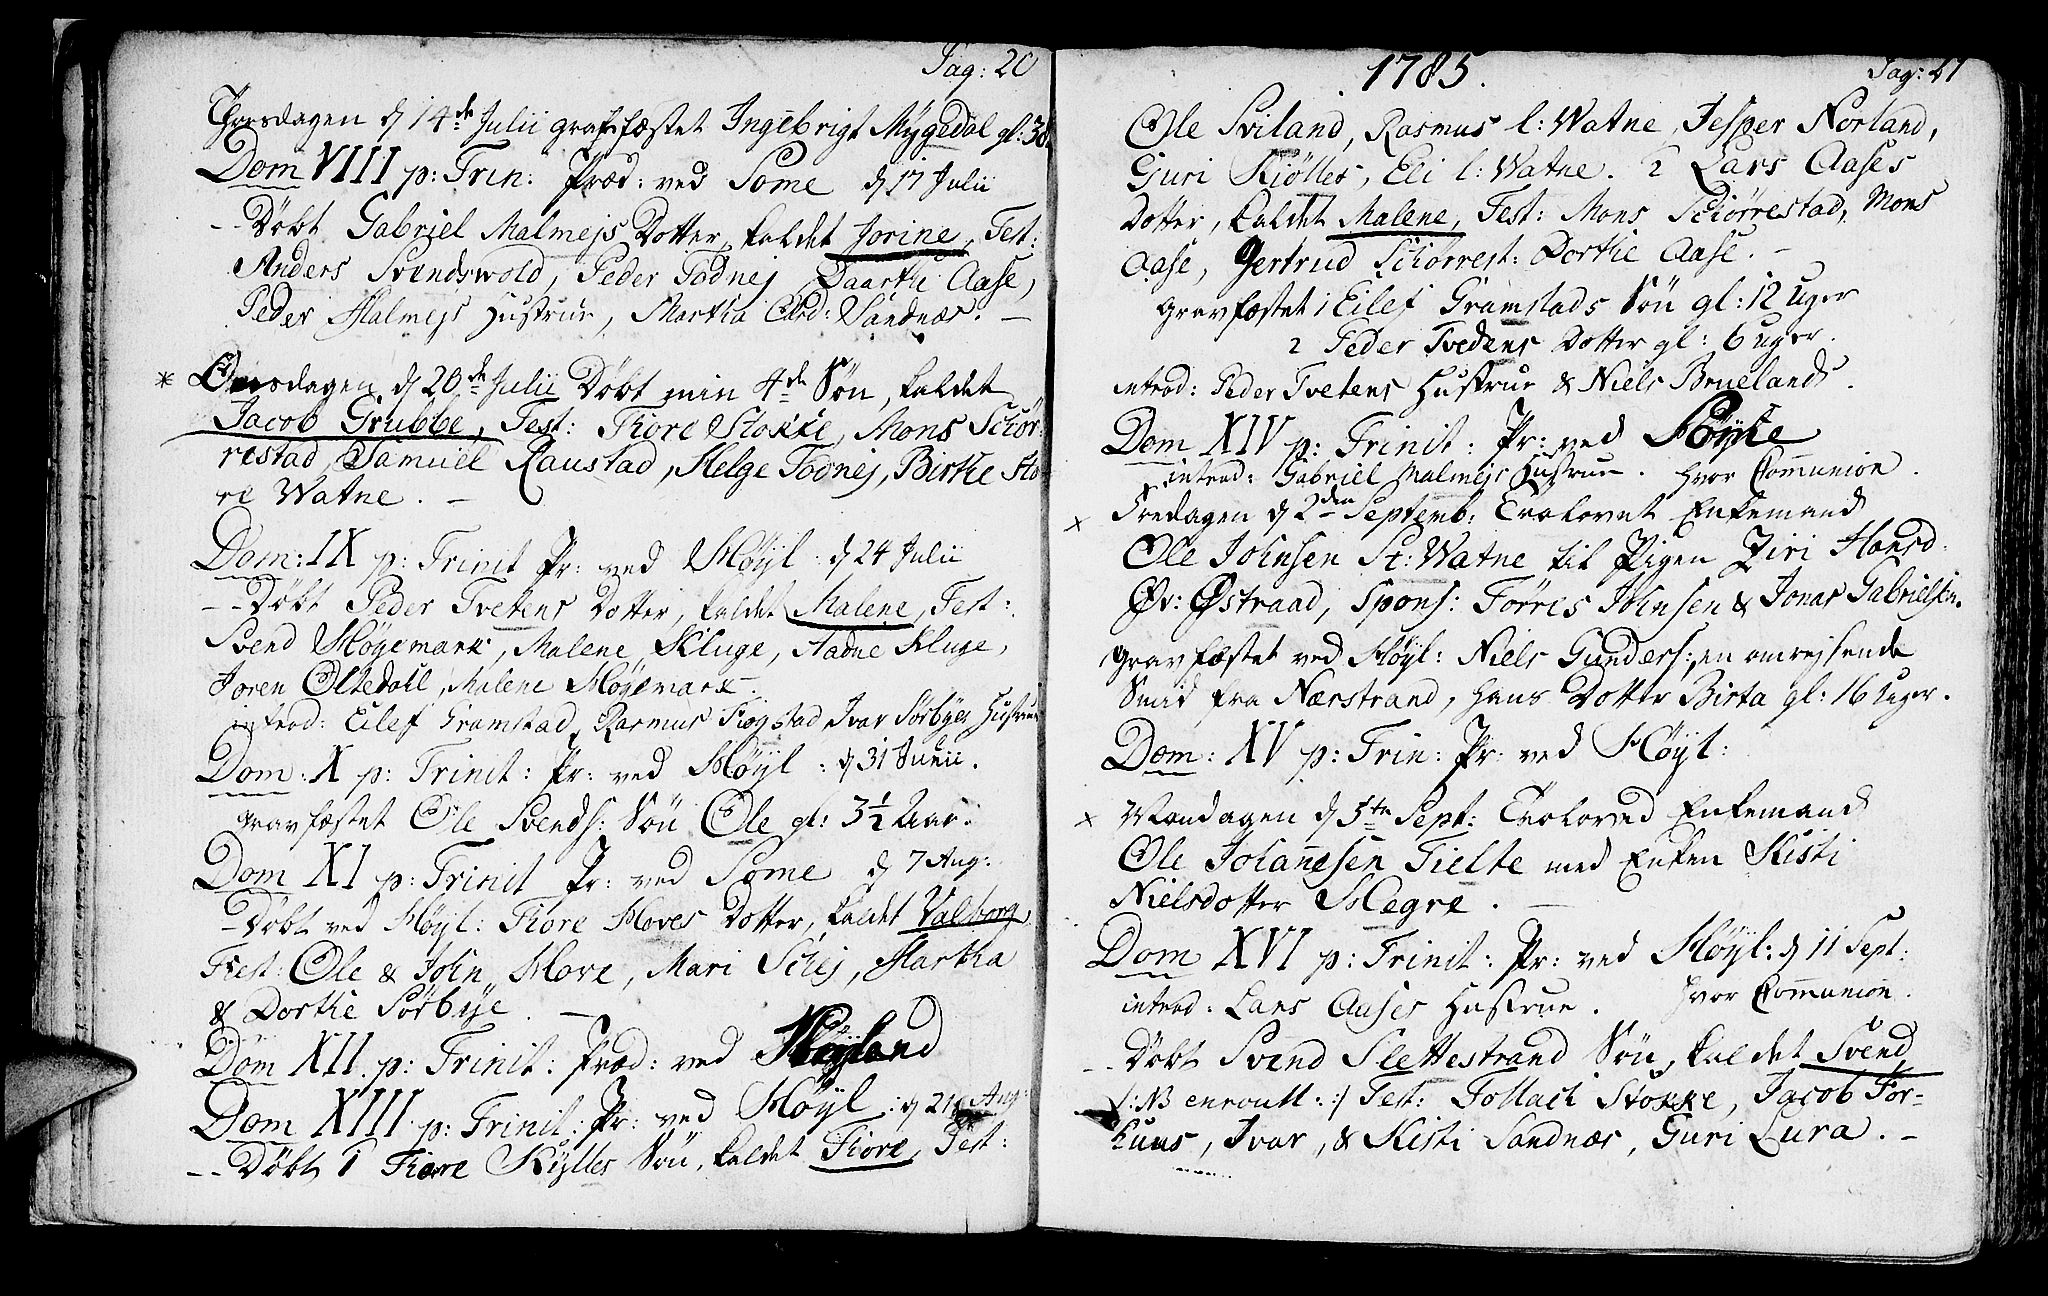 Pag: 20
Thorsdagen d 14de Julii grafæstet Ingebrigt Mygedal gl: 38
Dom VIII p: Trin: Præd: ved Some d 17 Julii
-- Døbt Gabriel Malmejs Dotter, kaldet Jorine, Test:
Anders Svendswold, Peder Todnej, Daarthe Aase,
Peder Malmejs Hustrue, Martha Sandnæs. -
* Onsdagen d 20de Julii Døbt min 4de Søn, kaldet
Jacob Grubbe, Test: Tiore Stokke, Mons Schiør-
restad, Samuel Raustad, Helge Todnej, Birthe Sto-
re Watne. -
Dom: IX p: Trinit Pr: ved Høyl: d 24 Julii
-- Døbt Peder Tvetens Dotter, kaldet Malene, Test:
Svend Høgemark, Malene Kluge, Aadne Kluge,
Joren Oltedall, Malene Høgemark.
introd: Eilef Gramstad, Rasmus Skogstad Ivar Sørbyes Hustrue
Dom: X p: Trinit: Pr: ved Høyl: d 31 Julii.
Gravfæstet Ole Svends: Søn Ole gl: 3½ Aar.
Dom XI p: Trinit Pr: ved Some d 7 Aug:
- Døbt ved Høyl: Tiore Hoves Dotter, kaldet Valborg
Test: Ole & John Hove, Mari Schej, Martha
& Dorthe Sørbye. -
Dom XII p: Trinit: Præd: ved Høyland
Dom XIII p: Trinit: Pr: ved Høyl: d 21 Aug:
-- Døbt 1 Tiore Kylles Søn, kaldet Tiore, Test:
1785.
Pag: 21
Ole Sviland, Rasmus l: Watne, Jesper Norland,
Guri Kiølles, Eli l: Watne. 2 Lars Aases
Dotter, kaldet Malene, Test: Mons Schiørrestad, Mons
Aase, Gertrud Schiørrest: Dorthe Aase. -
Gravfæstet 1 Eilef Gramstads Søn gl: 12 Uger
2 Peder Tvedens Dotter gl: 6 uger.
introd: Peder Tvetens Hustrue & Niels Bruelands.
Dom XIV p: Trinit: Pr: ved Høyle
introd: Gabriel Malmejs Hustrue. hvor Communion.
× Fredagen d 2den Septemb: Trolovet Enkemand
Ole Johnsen St: Watne til Pigen Ziri Hansd:
Øv: Østraad, Spons: Tørres Johnsen & Jonas Gabrielsen.
Gravfæstet ved Høyl: Niels Gunders:, en omrejsende
Smid fra Nærstrand, hans Dotter Birta gl: 16 Uger.
Dom: XV p: Trin: Pr: ved Høyl:
× Mandagen d 5te Sept: Troloved Enkemand
Ole Johannesen Tielte med Enken Kisti
Nielsdotter Hegre. -
Dom XVI p: Trinit: Pr: ved Høyl: d 11 Sept:
introd: Lars Aases Hustrue. hvor Communion.
-- Døbt Svend Slettestrand Søn, kaldet Svend
/: NB :/ Test: Tollach Stokke, Jacob For-
huus, Ivar, & Kisti Sandnæs, Guri Lura. -